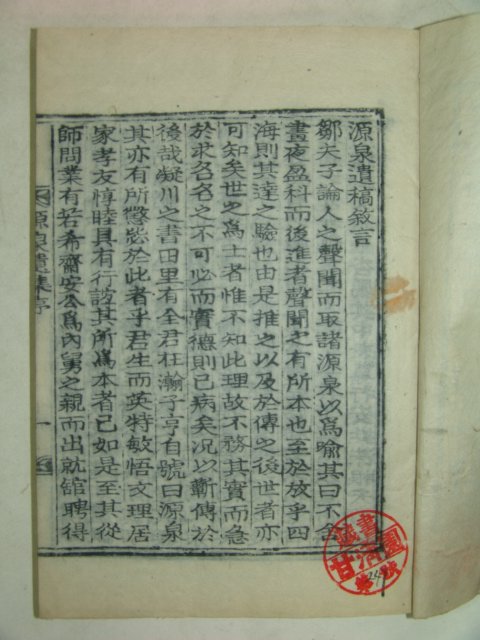 源泉遺稿敘言
鄒夫子論人之聲聞而取諸源泉以爲喩其曰不舍
晝夜盈科而後進者聲聞之有所本也至於放乎四
海則其達之驗也由是推之以及於傳之後世者亦
可知矣世之爲士者惟不知此理故不務其實而急
於求名名之不可必而實德則已病矣况以蘄傳於
後哉凝川之書田里有全君在瀚子亨自號曰源泉
其亦有所懲毖於此者乎君生而英特敏悟文理居
家孝友惇睦具有行誼其所爲本者已如是至其從
師問業有若希齋安公爲內舅之親而出就舘聘得
源泉遺集序
一
藏書